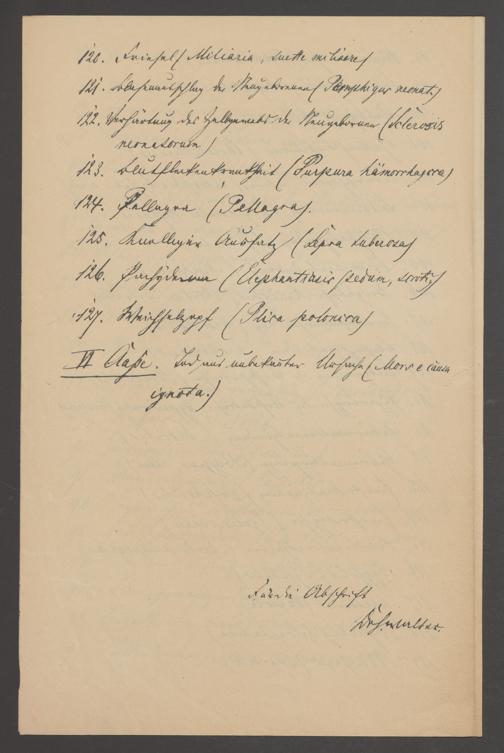 120. Friesel (Miliaria, suette miliaire)
121. Blasenausschlag der Neugeborenen (Pemphigus neonat.)
122. Verhärtung des Zellgewebes der Neugeborenen (Sclerosis
neonatorum)
123. Blutfleckenkrankheit (Purpura hämorrhagica)
124. Pellagra (Pellagra).
125. Knolliger Aussatz (Lepra tuberosa)
126. Pachyderma (Elephantiasis pedum, scroti)
127. Weichselzopf (Plica polonica)
VI Classe. Tod aus unbekannter Ursache (Mors e causa
ignota.)
Für die Abschrift